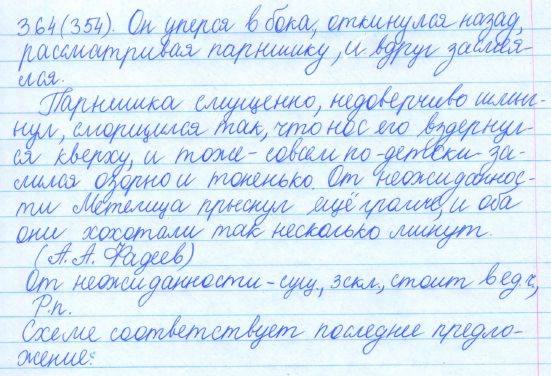 364(354). Он уперся в бока, откинулся назад,
рассматривая парнишку, и вдруг засмея-
лся.
Парнишка смущенно, недоверчиво шмыг-
нул, сморщился так, что нос его вздернул-
ся кверху, и тоже - совсем по-детски - за-
лился озорно и тоненько. От неожиданнос-
ти Метелица прыснул ещё громче, и оба
они хохотали так несколько минут.
(А.А. Фадеев)
От неожиданности - сущ., 3 скл., стоит в ед.ч,
Р.п.
Схеме соответствует последнее предло-
жение: